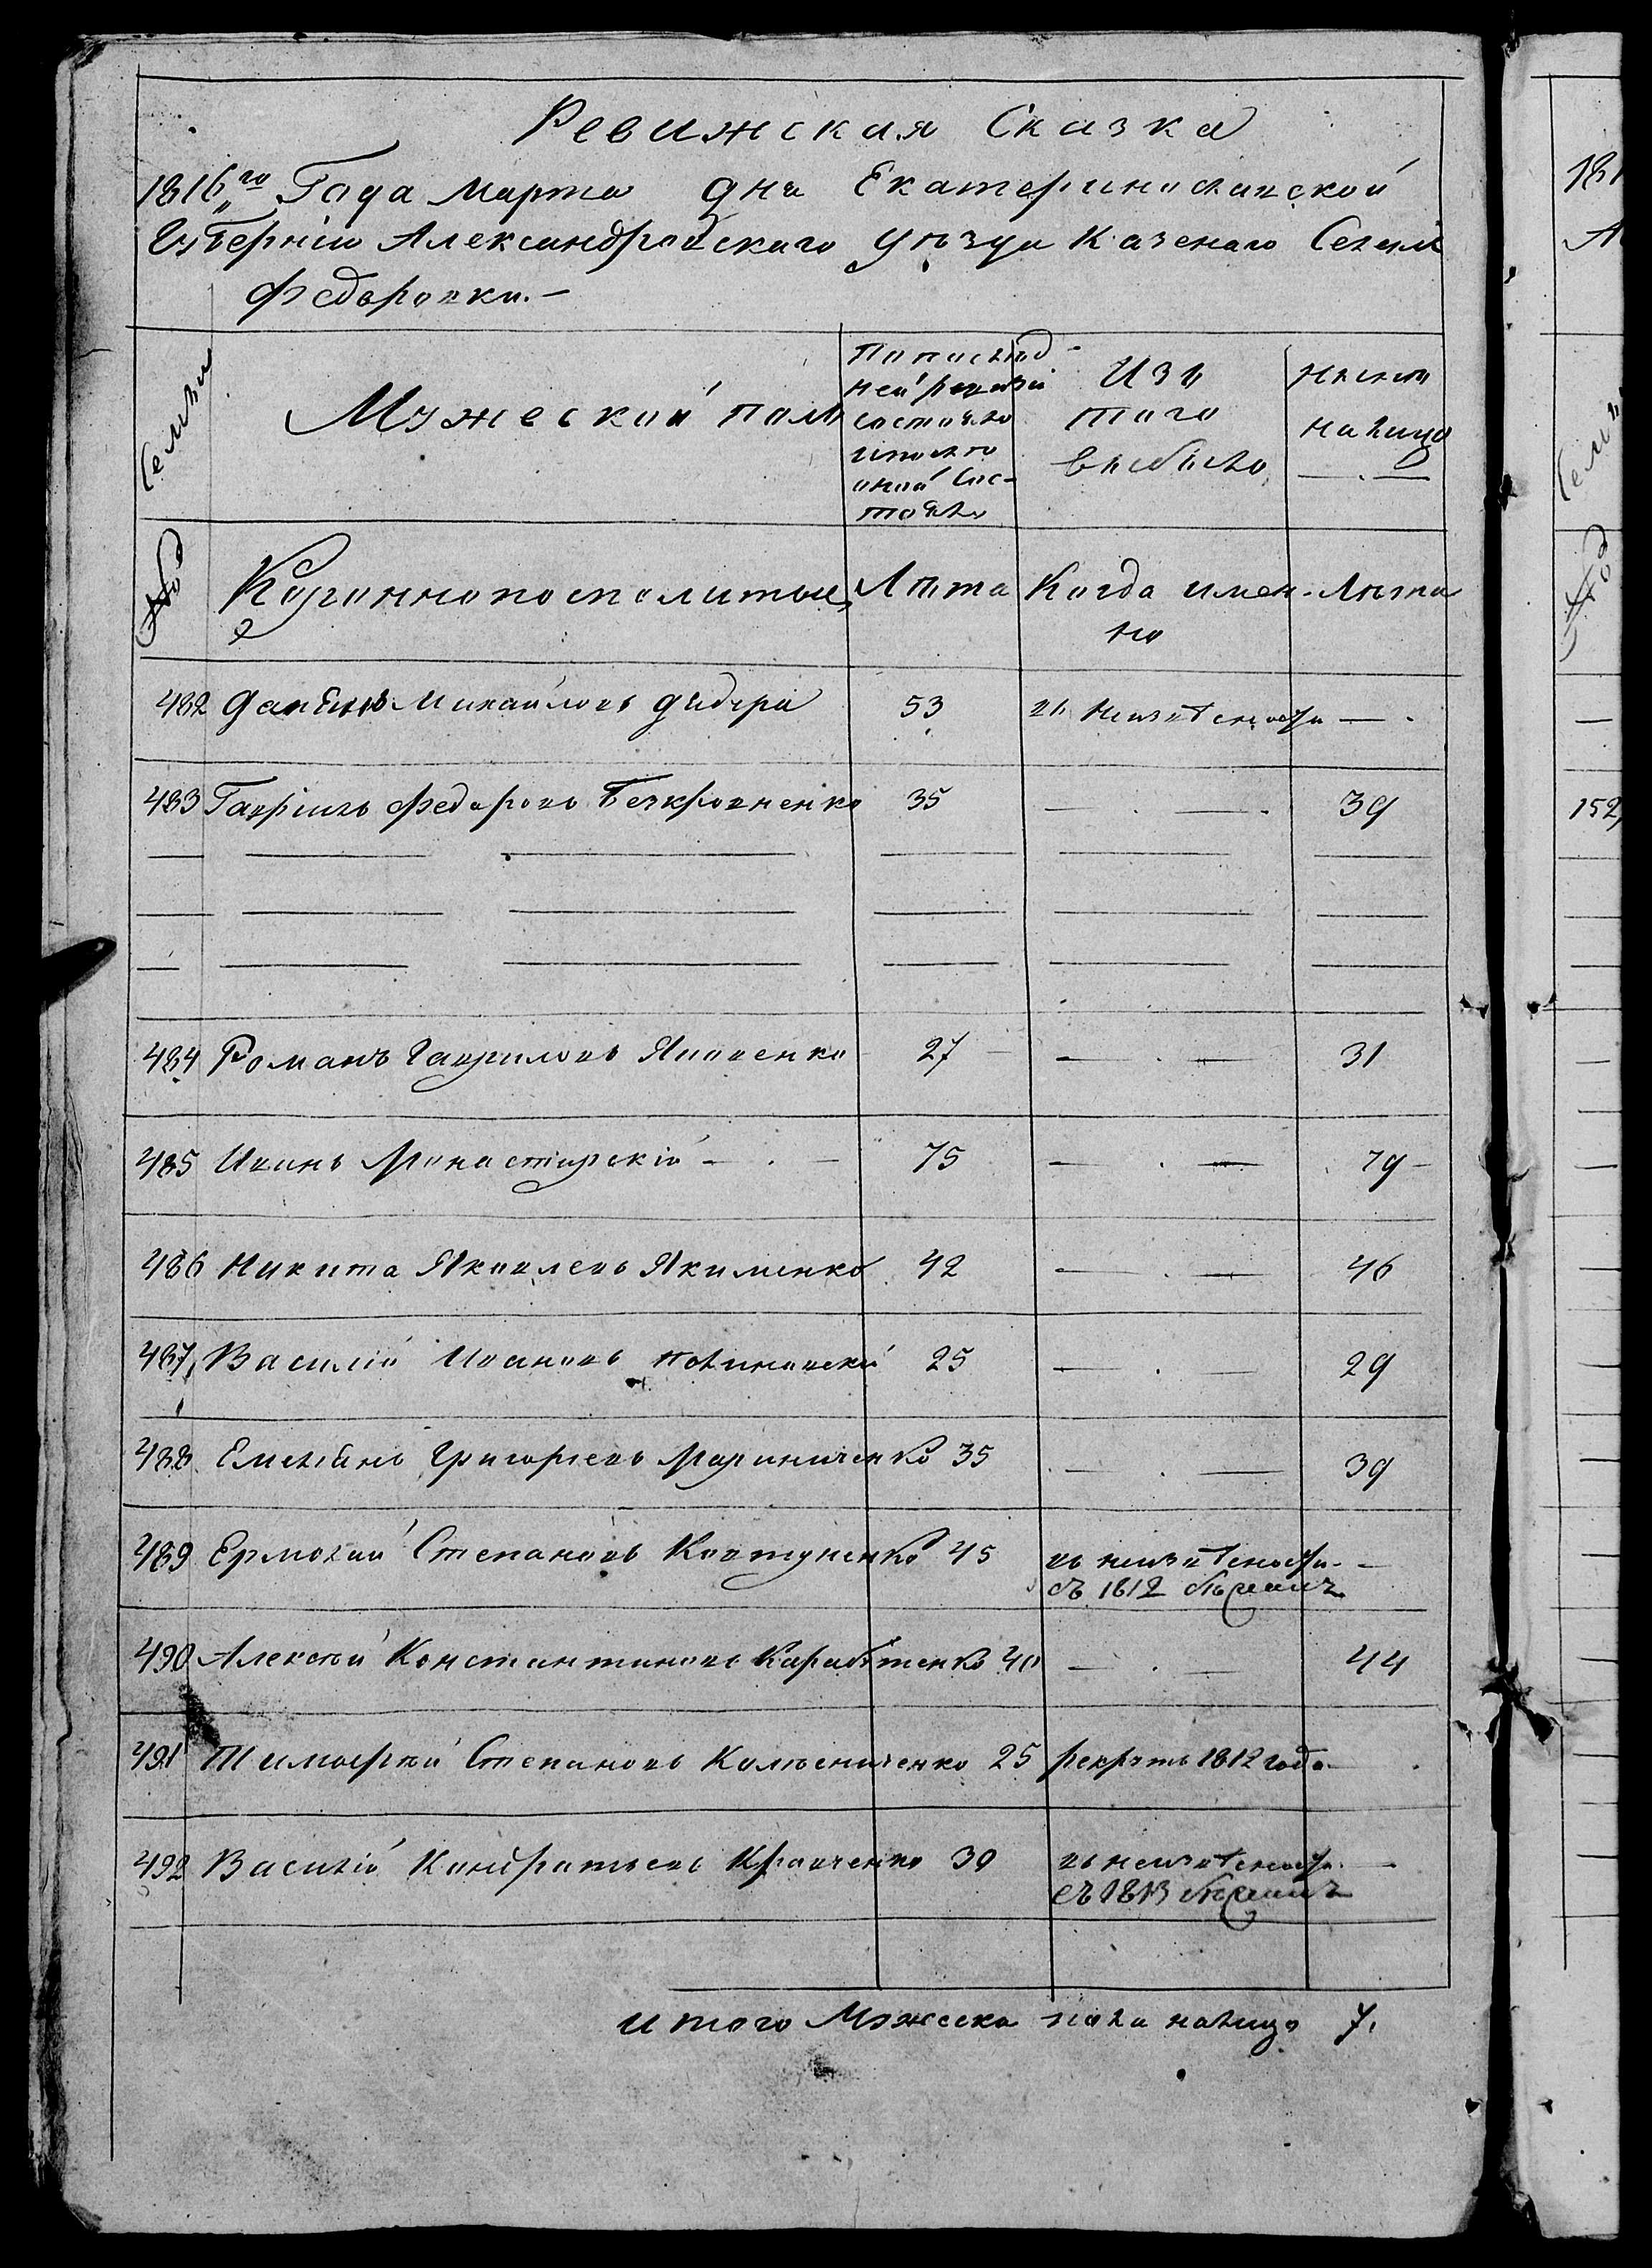 Ревижская Сказка
1816го Года Марта дня Екатеринославской
Губерніи Александровскаго уѣзда Казенаго Селенія
Федоровки.—
Семьи
Мужеской полъ
По послѣд-
ней ревизіи
состояло
и послѣ
оной Сос-
тояло
Изъ
того
выбыло
Нынѣ
на лицо
№
Коронно посполитые
Лѣта
Когда имен-
но
Лѣта
482 Даніилъ Михайловъ Дидера 53 въ неизвѣсности — .
483 Гавріилъ Федоровъ Безкровненко 35 — . — . 39
484 Романъ Гавриловъ Яковенко 27 — . — 31
485 Иванъ Монастирскій — . — 75 — . — 79 —
486 Никита Яковлевъ Якименко 42 — . — 46
487, Василій Ивановъ Полиновскій 25 — . — 29
488 Емельянъ Григорьевъ Мариниченко 35 — . — 39
489 Ермолай Степановъ Ковтуненко 45 въ неизвѣсности —
съ 1812
490 Алексѣй Константиновъ Карабутенко 40 — . — 44
491 Тимофѣй Степановъ Колѣсниченко 25 рекрутъ 1812 года — .
492 Василій Кондратьевъ Кравченко 30 въ неизвѣсности —
съ 1813
итого Мужеска пола налицо 7.
181
А
Семьи
№
152,